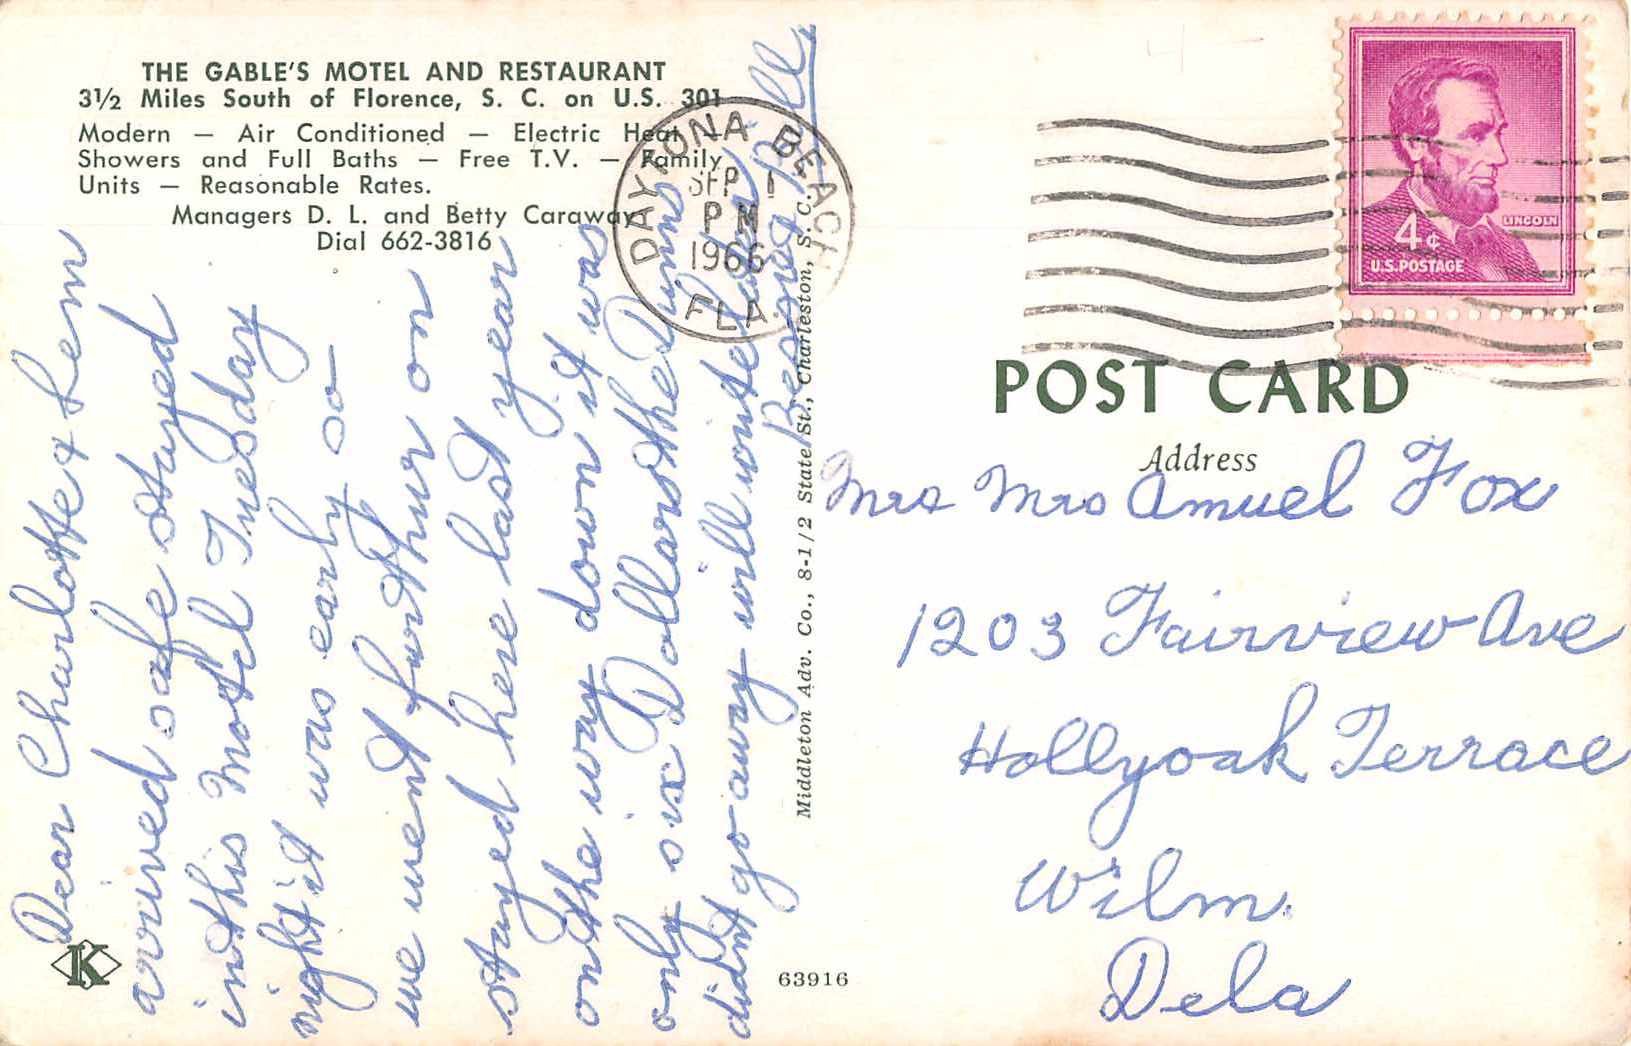 THE GABLE'S MOTEL AND RESTAURANT
3½ Miles South of Florence, S. C. on U.S. 301
Modern — Air Conditioned — Electric Heat —
Showers and Full Baths — Free T.V. — Family
Units — Reasonable Rates.
Managers D. L. and Betty Caraway
Dial 662-3816
DAYTONA BEACH
SEP 1
PM
1966
FLA
LINCOLN
4¢
U.S. POSTAGE
POST CARD
Address
Mrs Mrs Amuel Fox
1203 Fairview Ave
Hollyoak Terrace
Wilm.
Dela
Dear Charlotte & Lem
arrived safe stayed
in this Motel Tuesday
night it was early so
we went furthur on
stayed here last year
on the way down it was
only six Dollars the Dunns
didnt go away will write later
Bess and Bill
Middleton Adv. Co., 8-1/2 State St., Charleston, S. C.
K
63916